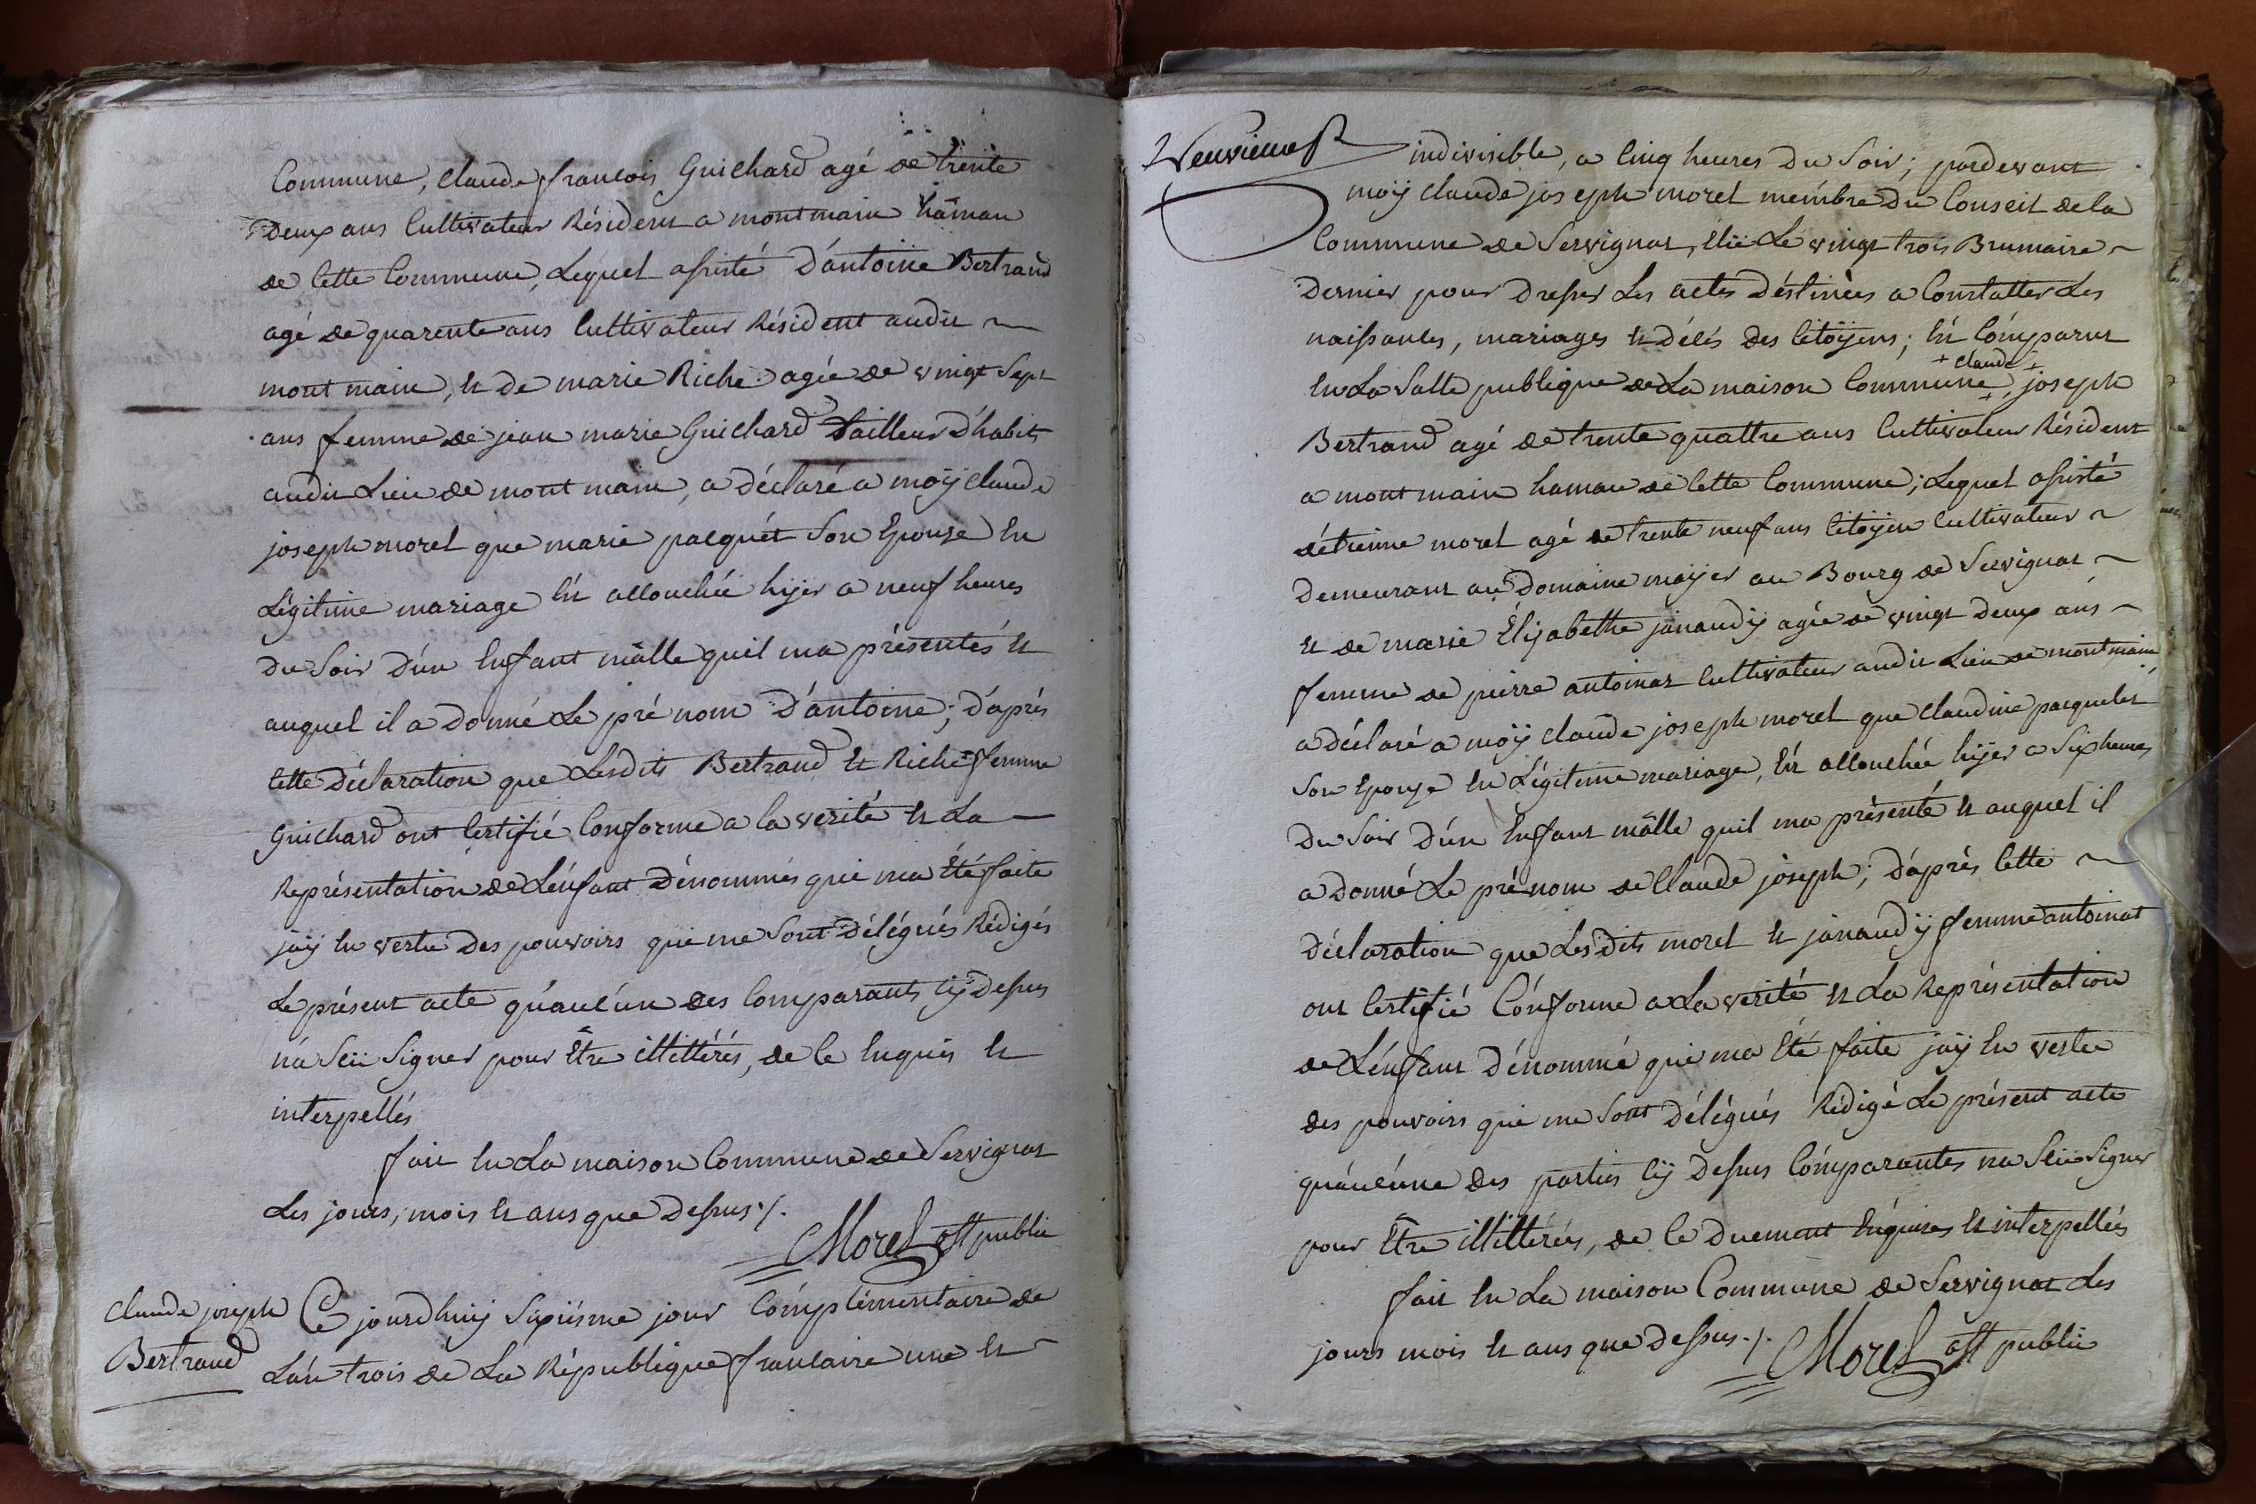 Commune, Claude françois Guichard agé de trente
Deux ans Cultivateur Résident a montmain hâmau
de Cette Commune, Lequel assisté D'antoine Bertrand
agé de quarente ans Cultivateur Résident audit ~
mont main, et de marie Riche agée de vingt Sept
ans femme de jean marie Guichard tailleur D'habits
audit Lieu de mont main, a déclaré a moÿ Claude
joseph morel que marie pacquét Son Epouse En
Légitime mariage Est accouchée hijer a neuf heures
Du Soir D'un Enfant mâlle quil ma présentés et
auquel il a Donné Le pré nom D'antoine; D'aprés
Cette Déclaration que Lesdits Bertrand et Riche femme
Guichard ont Certifié Conforme a la verité et La —
Représentation de L'énfant Dénommés qui ma Eté faite
jaÿ En vertu Des pouvoirs qui me Sont Délégués Rédigés
Le présent acte qu'aucun Des Comparants Cÿ Dessus
n'a Seü Signer pour Être illittérés, de Ce Enquis et
interpellés
fait En La maison Commune de Servignat
Les jours, mois et ans que Dessus ./.
Morel off public
Claude joseph
Bertrand
Ce jourdhuij Sixiésme jour Cómplémentaire de
L'an trois de La République francaire une et ~
Neuvieme R
indivisible, a Cinq heures Du Soir; pardevant
moÿ Claude joseph morel membre Du Conseil de la
Commune de Servignat, Élü Le vingt trois Brumaire ~
Dernier pour Dresser Les actes Déstinèes a Constatter Les
naissances, mariages et Décés Des Citoÿens; Est Cómparut
+ Claude +
En La Salle publique de La maison Commune, + joseph
Bertrand agé de trente quattre ans Cultivateur Résident
a mont main hamau de Cette Commune; Lequel assisté
détienne morel agé de trente neuf ans Citoÿen Cultivateur ~
Demeurant au Domaine maÿer au Bourg de Servignat ~
et de marie Élijabethe janaudÿ agée de vingt Deux ans ~
femme de pierre antoinat Cultivateur audit Lieu de montmain
a Déclaré a moÿ Claude joseph morel que Claudine pacquelet
Son Epouse En Légitime mariage, Est accouchée hijer a Six heures
Du Soir D'un Enfant mâlle quil ma présenté et auquel il
a Donné Le pré nom de Claude joseph; D'aprés Cette ~
Déclaration que Les Dits morel et janaudÿ femme antoinat
ont Certifié Cónforme a La verité et La Représentation
de L'énfant Dénommé qui ma Eté faite jaÿ En vertu
Des pouvoirs qui me Sont Délégués Rédigé Le présent acte
qu'aucune Des parties Cÿ Dessus Cómparantes na Seü Signer
pour Être illittérées, de Ce Duement Enquises et interpellées
fait En La maison Commune de Servignat Les
jours mois et ans que Dessus ./. Morel off public